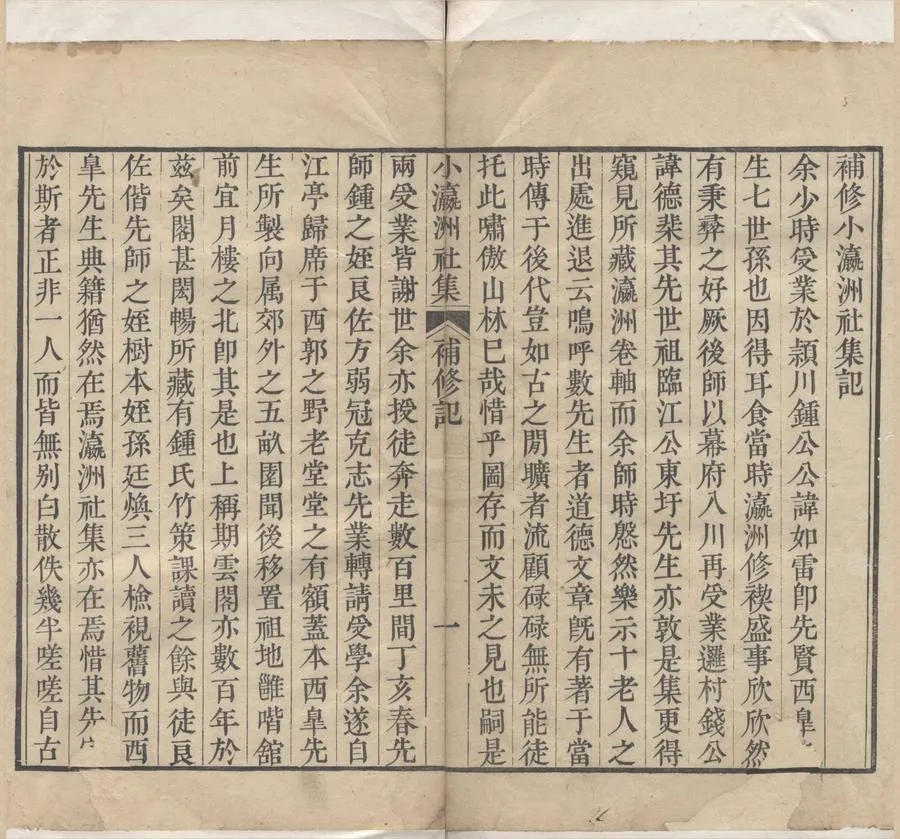 補修小瀛洲社集記
余少時受業於潁川鍾公公諱如雷卽先賢西臯
生七世孫也因得耳食當時瀛洲修禊盛事欣欣然
有秉彛之好厥後師以幕府入川再受業邏村錢公
諱德棻其先世祖臨江公東圩先生亦敦是集更得
窺見所藏瀛洲卷軸而余師時慇然樂示十老人之
出處進退云嗚呼數先生者道德文章旣有著于當
時傳于後代豈如古之閒曠者流顧碌碌無所能徒
托此嘯傲山林巳哉惜乎圖存而文未之見也嗣是
小瀛洲社集 補修記 一
兩受業皆謝世余亦授徒奔走數百里間丁亥春先
師鍾之姪艮佐方弱冠克志先業轉請受學余遂自
江亭歸席于西郭之野老堂堂之有額蓋本西臯先
生所製向属郊外之五畝園聞後移置祖地雝喈舘
前宜月樓之北卽其是也上稱期雲閣亦數百年於
茲矣閣甚閎暢所藏有鍾氏竹策課讀之餘與徒艮
佐偕先師之姪樹本姪孫廷煥三人檢視舊物而西
臯先生典籍猶然在焉瀛洲社集亦在焉惜其先
於斯者正非一人而皆無别白散佚幾半嗟嗟自古